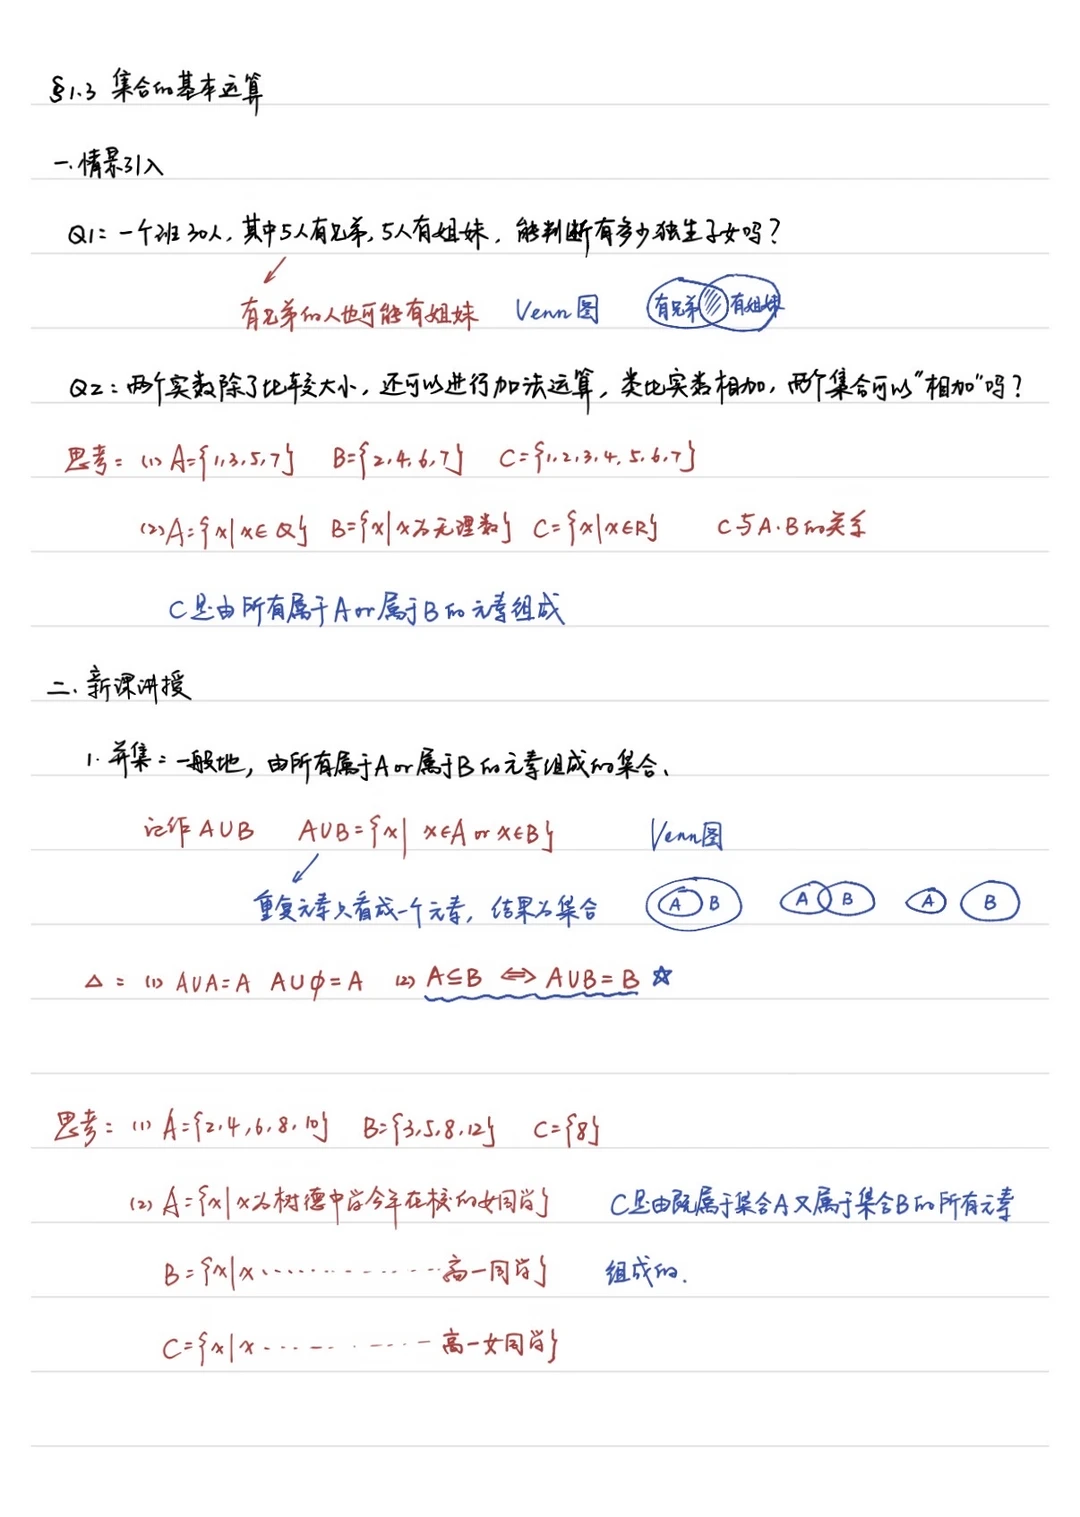 §1.3 集合的基本运算
一.情景引入
Q1: 一个班30人, 其中5人有兄弟, 5人有姐妹, 能判断有多少独生子女吗?
有兄弟的人也可能有姐妹 Venn图 有兄弟 有姐妹
Q2: 两个实数除了比较大小, 还可以进行加法运算, 类比实数相加, 两个集合可以"相加"吗?
思考: (1) A={1,3,5,7} B={2,4,6,7} C={1,2,3,4,5,6,7}
(2) A={x|x∈Q} B={x|x为无理数} C={x|x∈R} C与A.B的关系
C是由所有属于A or 属于B的元素组成
二. 新课讲授
1. 并集: 一般地, 由所有属于A or 属于B的元素组成的集合.
记作 A∪B A∪B={x| x∈A or x∈B} Venn图
重复元素只看成一个元素, 结果为集合 A B A B A B
△: (1) A∪A=A A∪∅=A (2) A⊆B ⟺ A∪B=B ☆
思考: (1) A={2,4,6,8,10} B={3,5,8,12} C={8}
(2) A={x|x为树德中学今年在校的女同学} C是由既属于集合A又属于集合B的所有元素
B={x|x··············高一同学} 组成的.
C={x|x··············高一女同学}